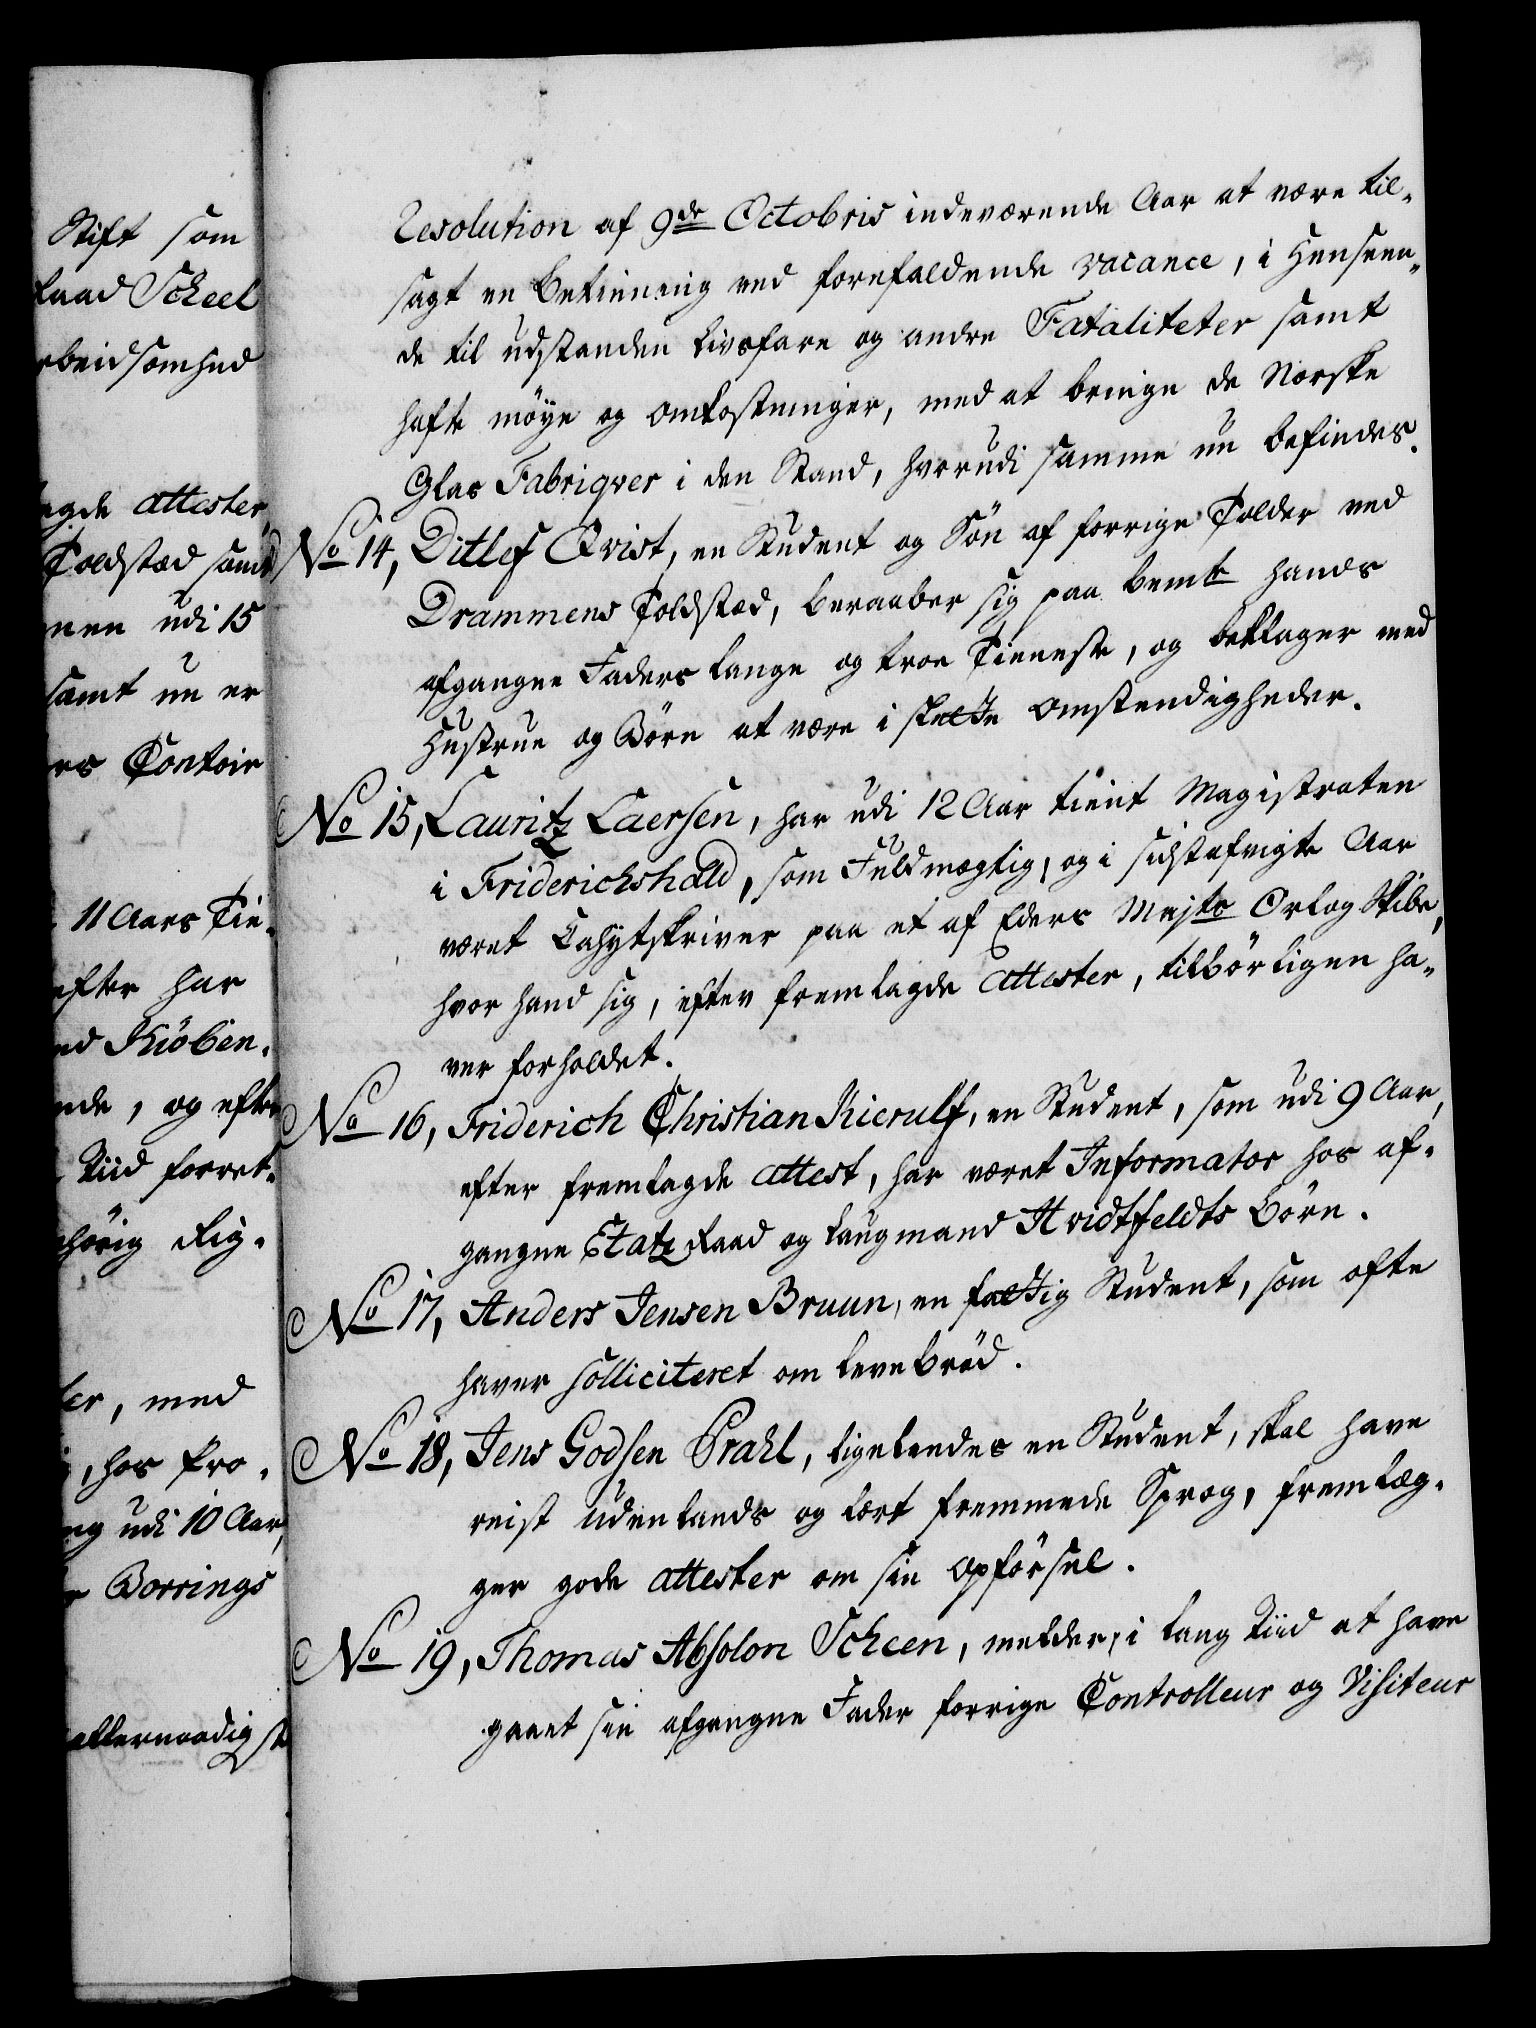 Stift som
raad Scheel
rbeidsomhed
egde attester,
Toldstæd samt
nen udi 15
samt nu er
rs Contoir
11 Aars Tie-
efter har
ed Kiöben-
nde, og efter
Tiid forret-
hörig Rig-
er, med
, hos Pro-
ng udi 10 Aar,
r Borrings
allernaadigst
Resolution af 9de Octobris indeværende Aar at være til-
sagt en betiening ved forefaldende vacance, i Henseen-
de til udstanden livsfare og andre Fataliteter samt
hafte möye og omkostninger, med at bringe de Norske
Glas Fabriqver i den Stand, hvorudi samme nu befindes.
No 14, Ditlef Qvist, en Student og Sön af forrige Tolder ved
Drammens Toldstæd, beraaber sig paa bemte hands
afgangne Faders lange og troe Tieneste, og beklager med
Hustrue og Börn at være i slette omstendigheder.
No 15, Lauritz Laersen, har udi 12 Aar tient Magistraten
i Friderichshald, som Fuldmægtig, og i sidstafvigte Aar
været Cahytskriver paa et af Eders Majts Orlog Skibe,
hvor hand sig, efter fremlagde attester, tilbörligen ha-
ver forholdet.
No 16, Friderich Christian Kierulf, en Student, som udi 9 Aar,
efter fremlagde attest, har været Informator hos af-
gangne Etatz Raad og Laugmand Hvidtfeldts börn.
No 17, Anders Jensen Bruun, en fattig Student, som ofte
haver solliciteret om levebröd.
No 18, Jens Godsen Prahl, ligeledes en Student, skal have
reist udenlands og lært fremmede Sprog, fremlæg-
ger gode attester om sin opförsel.
No 19, Thomas Absolon Scheen, melder, i lang Tiid at have
gaaet sin afgangne Fader forrige Controlleur og Visiteur